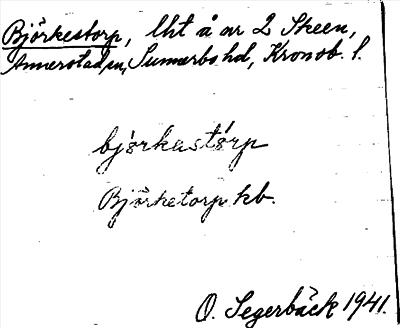 Björkestorp, lht å nr 2 Skeen,
Annerstad sn, Sunnerbo hd, Kronob. l.
björkastórp
Björketorp kb.
O. Segerbäck 1941.